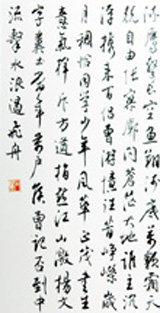 流鷹擊長空魚翔淺底萬類霜天
競自由悵寥廓問蒼茫大地誰主沉
浮携來百侣曾遊憶往昔崢嶸歲
月稠恰同學少年風華正茂書生
意氣揮斥方遒指點江山激揚文
字糞土當年萬户侯曾記否到中
流擊水浪遏飛舟